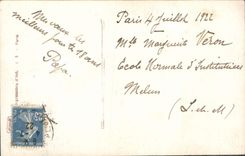 Paris 4 Juillet 1922
Mes vœux les
meilleurs pour tes 18 ans
Papa
Mlle Marguerite Véron
Ecole Normale d'Institutrices
Melun
(S.-et-M.)